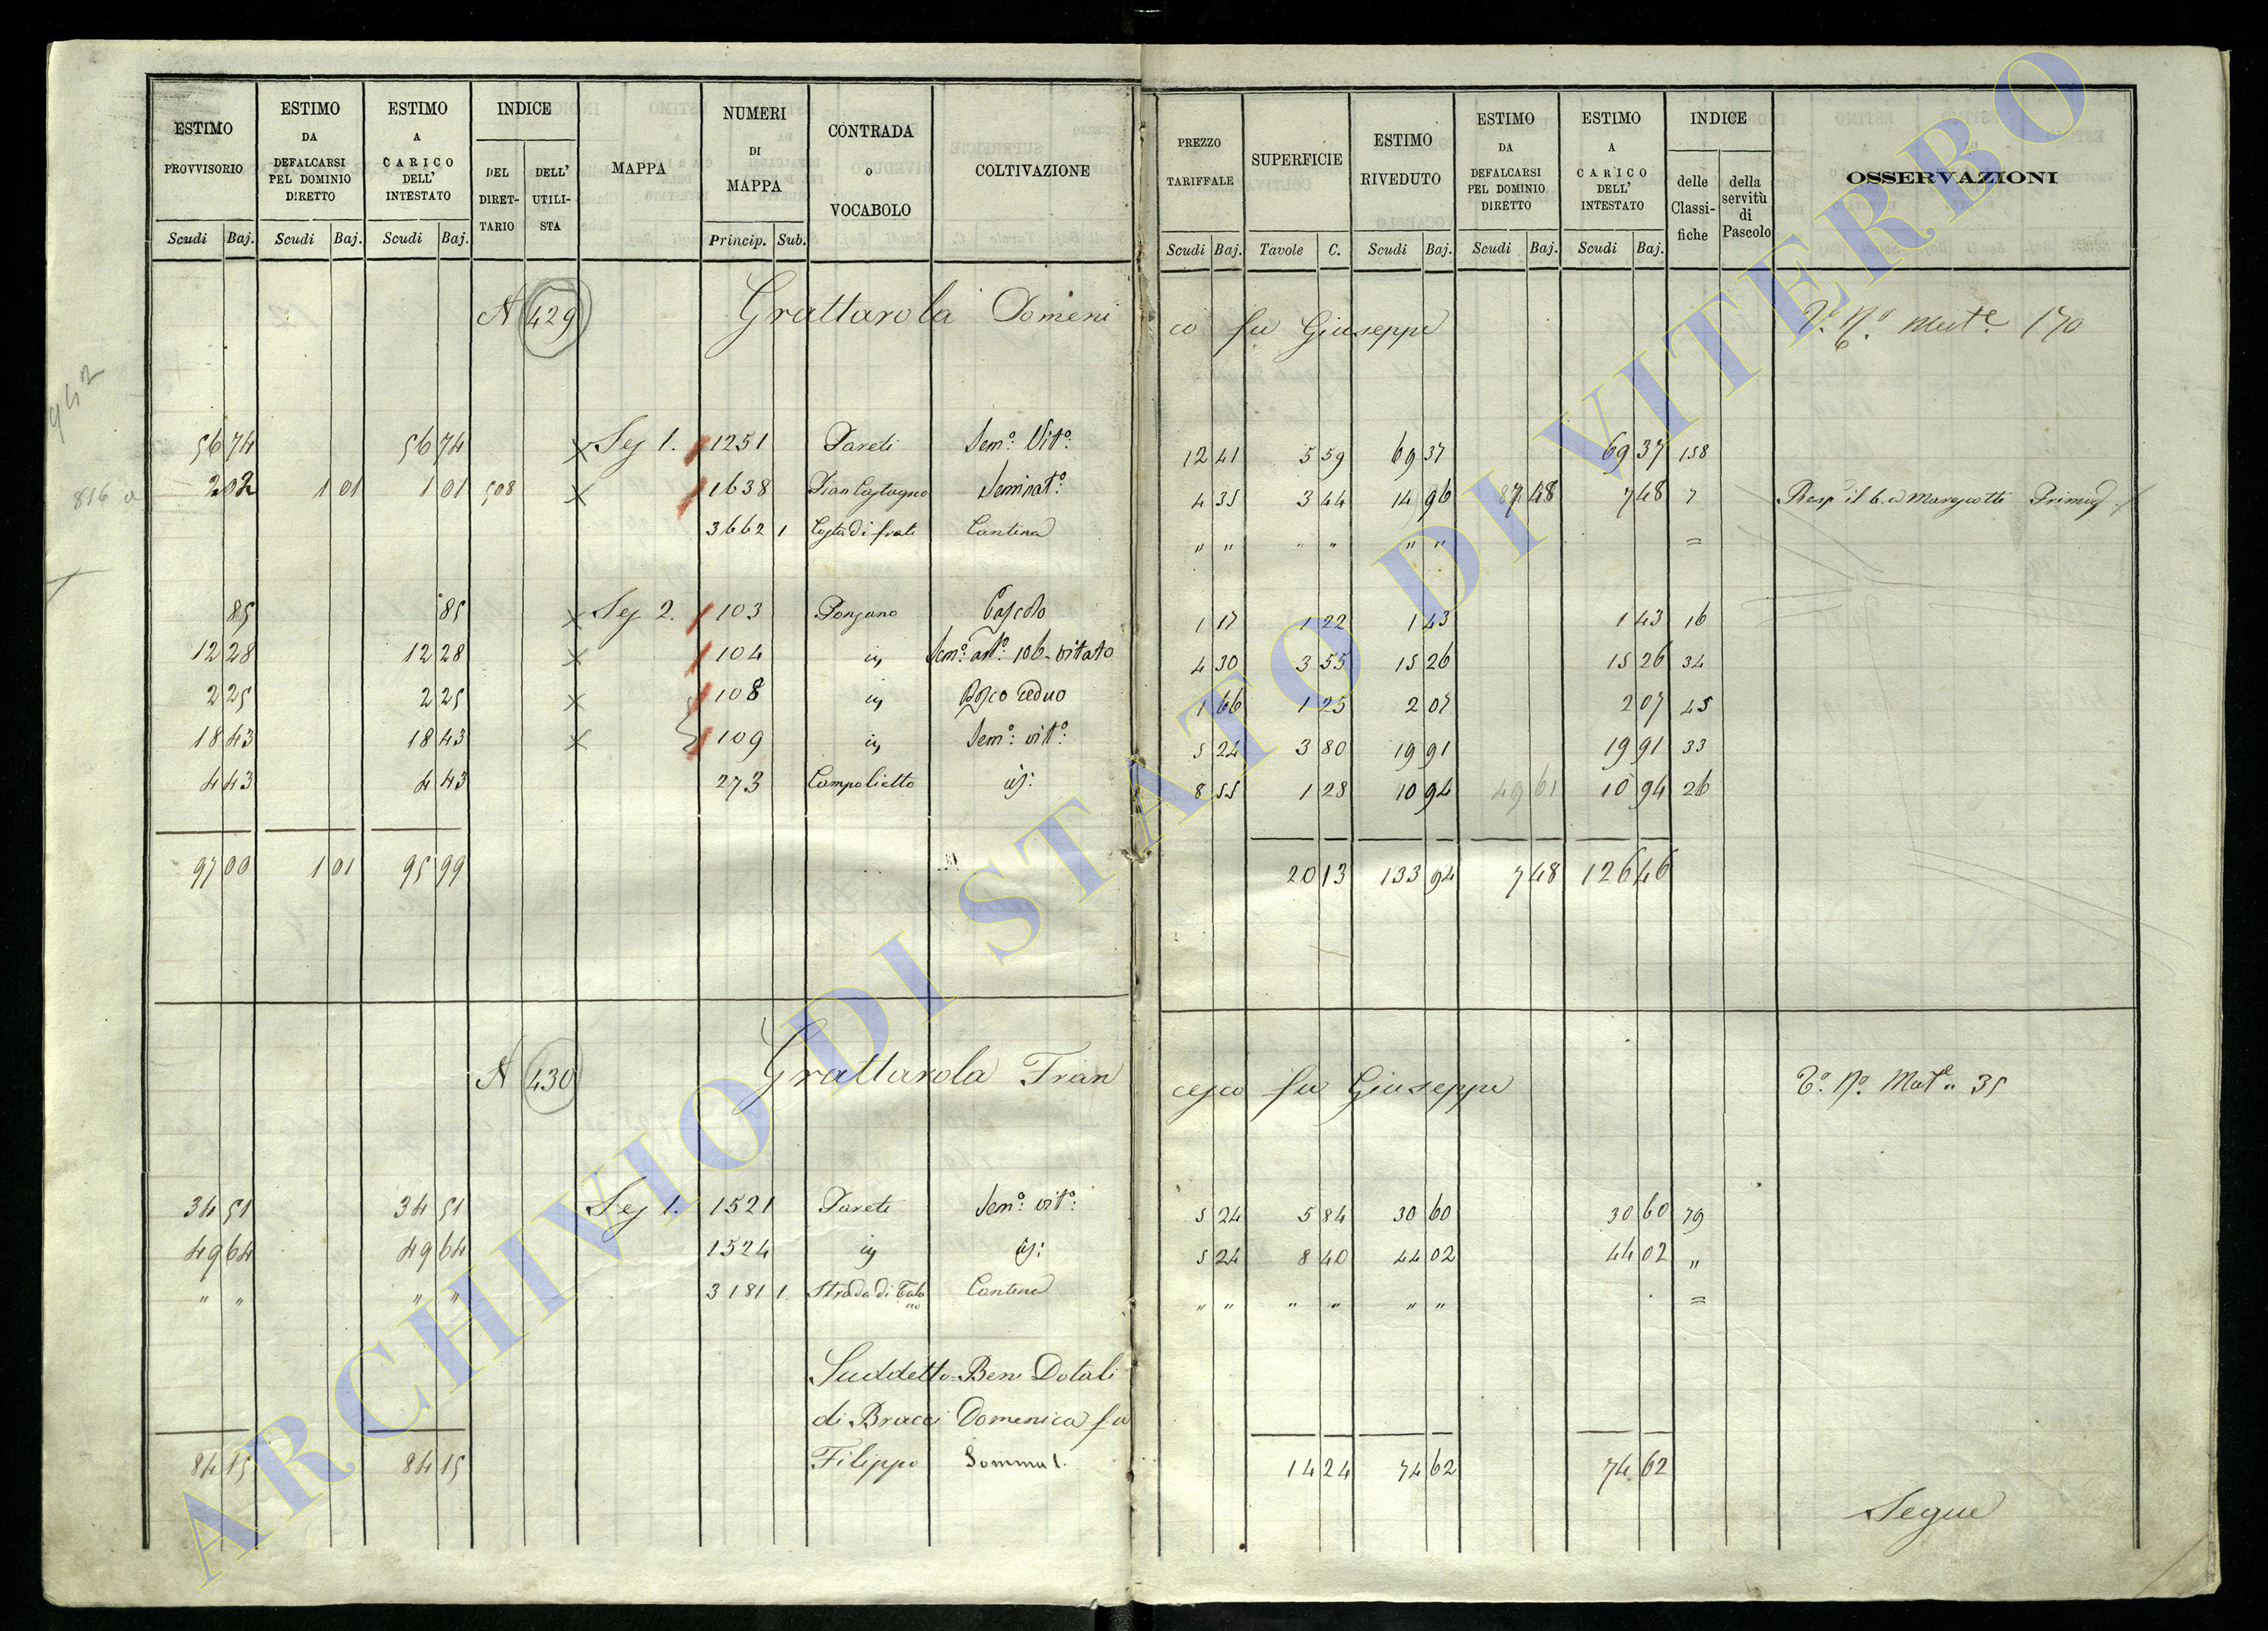 ESTIMO PROVVISORIO Scudi Baj.
ESTIMO DA DEFALCARSI PEL DOMINIO DIRETTO Scudi Baj.
ESTIMO A CARICO DELL' INTESTATO Scudi Baj.
INDICE DEL DIRET-TARIO DELL' UTILI-STA
MAPPA
NUMERI DI MAPPA Princip. Sub.
CONTRADA o VOCABOLO
COLTIVAZIONE
PREZZO TARIFFALE Scudi Baj.
SUPERFICIE Tavole C.
ESTIMO RIVEDUTO Scudi Baj.
ESTIMO DA DEFALCARSI PEL DOMINIO DIRETTO Scudi Baj.
ESTIMO A CARICO DELL' INTESTATO Scudi Baj.
INDICE delle Classi-fiche della servitù di Pascolo
OSSERVAZIONI
A 429 Grattarola Domeni co fu Giuseppe 170
56 74 56 74 x Sez 1. 1251 Pareti Sem.o Vit.o 12 41 5 59 69 37 69 37 158
816 2 02 1 01 1 01 508 x 1638 Pian Castagno Seminat.o 4 35 3 44 14 96 7 48 7 48 7
3662 1 Costa di frati Cantina " " " " " " =
85 85 x Sez 2. 103 Ponzano Pascolo 1 17 1 22 1 43 1 43 16
12 28 12 28 x 104 id Sem.o vitato 4 30 3 55 15 26 15 26 34
2 25 2 25 x 108 id Bosco ceduo 1 66 1 25 2 07 2 07 45
18 43 18 43 x 109 id Sem.o vit.o 5 24 3 80 19 91 19 91 33
4 43 4 43 273 Campolietto id: 8 55 1 28 10 94 49 61 10 94 26
97 00 1 01 95 99 20 13 133 94 7 48 126 46
A 430 Grattarola Fran cesco fu Giuseppe 35
34 51 34 51 Sez 1. 1521 Pareti Sem.o vit.o 5 24 5 84 30 60 30 60 79
49 64 49 64 1524 id id: 5 24 8 40 44 02 44 02 "
" " " " 3181 1 Strada di Cantina " " " " " " =
Suddetto-Beni Dotali
di Bracci Domenica fu
Filippo Somma l.
84 15 84 15 14 24 74 62 74 62
Segue
ARCHIVIO DI STATO DI VITERBO